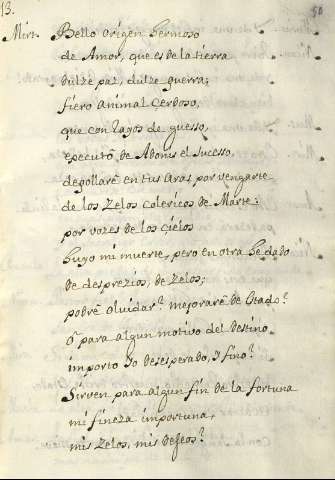 13.
50
Mirt. Bello origen hermoso
de Amor, que es de la tierra
dulze paz, dulze guerra;
fiero animal Cerdoso,
que con rasgos de guesso,
executò de Adonis el Sucesso,
degollarè en tus aras por vengarte
de los Zelos Colericos de Marte:
por vozes de los Cielos
huyo mi muerte, pero en otra he dado
de desprezios, de Zelos;
podrè olvidar? mejorarè de estado?
ò para algun motivo del destino
importo yo desesperado, y fino?
Sirven para algun fin de la fortuna
mi fineza importuna,
mis Zelos, mis deseos?